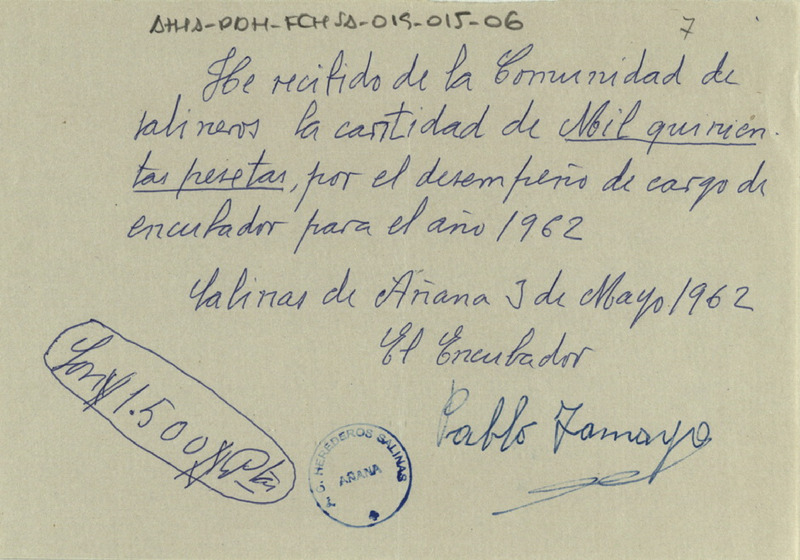 AHHS-PDH-FCHSA-019-015-06
7
He recibido de la Comunidad de
salineros la cantidad de Mil quinien-
tas pesetas, por el desempeño de cargo de
encubador para el año 1962
Salinas de Añana 3 de Mayo 1962
El Encubador
Son # 1.500 # Ptas
Pablo Tamayo
HEREDEROS SALINAS
AÑANA